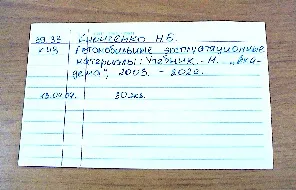 39.33 Кириченко Н.Б.
К 43 Автомобильные эксплуатационные
материалы: Учебник. - М. „Ака-
дема", 2003. - 202с.
15.04.04. 30экз.